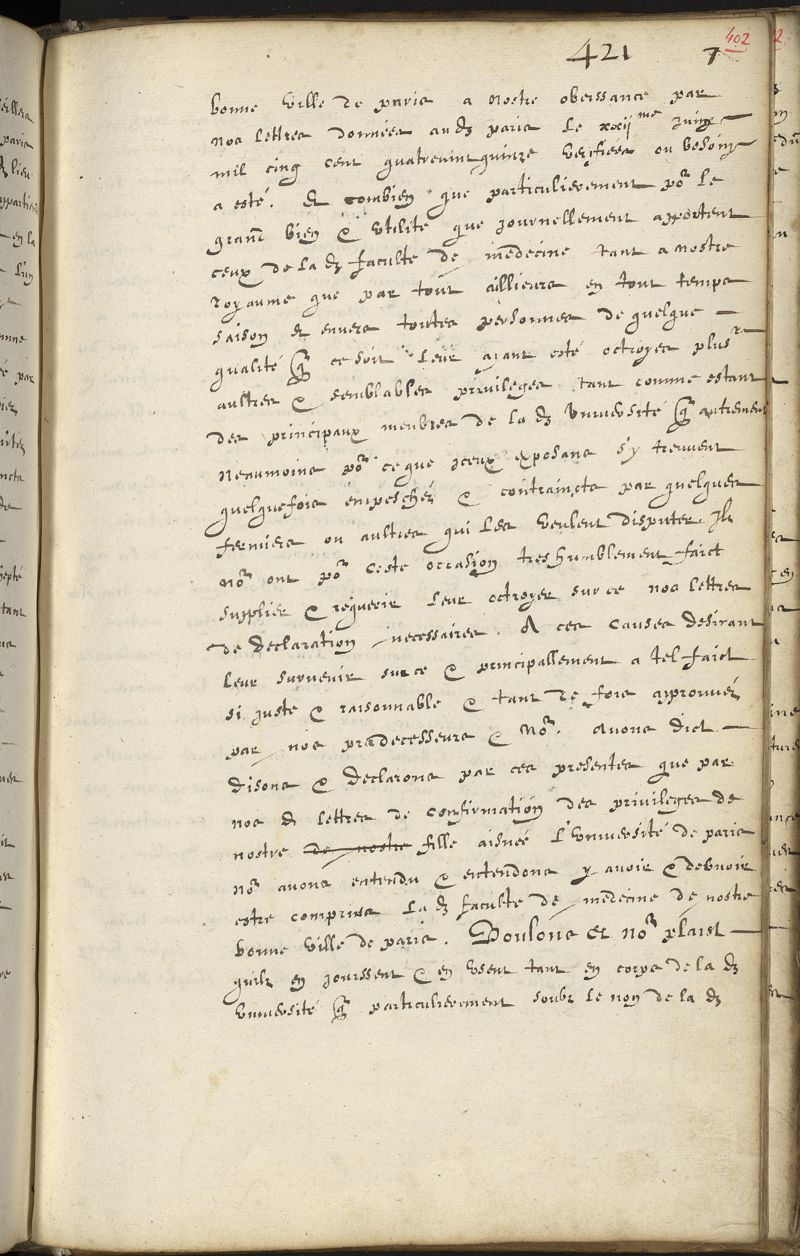 402
421 7
bonne ville de paris a nostre obeissance par
nos lettres données aud paris le xxij me juing
mil cinq cent quatrevint quinze veriffiees ou besoing
a esté. Et combien que particulierement po^r le
grand bien & utilité que journellement apportent
ceux de la d faculté de medecine tant a nostre
royaume que par tout aillieurs en tout temps
saison et envers toutes personnes de quelque
qualité q ce soit leur ayant esté octroyes plus^rs
aultres & semblables privileges tant comme estant
des principaux menbres de la d université q autrement
Neaumoins po^r ce que iceux exposans s'y treuvent
quelquefois empeschéz & contraincts par quelques
fermiers ou aultres qui les veulent disputer. Ilz
no^s ont po^r ceste occasion tres humblement faict
supplier & requerir leur octroyer sur ce nos lettres
de declaration necessaires. A ces causes desirant
leur survenir sur ce & principallement a tel faict
si juste & raisonnable & tant de fois approuvéz
par nos prædecesseurs & No^s. Avons dict
disons & declarons par ces presentes que par
nos d lettres de confirmation des privileges de
nostre de nostre fille aisnée l'Université de paris
No^s avons entendu & entendons y avoir & debvoir
estre comprise la d faculté de medecine de nostre
bonne ville de paris. Voulons et no^s plaist
quilz en jouissent & en usent tant en corps de la d
université q particulierement soubz le nom de la d